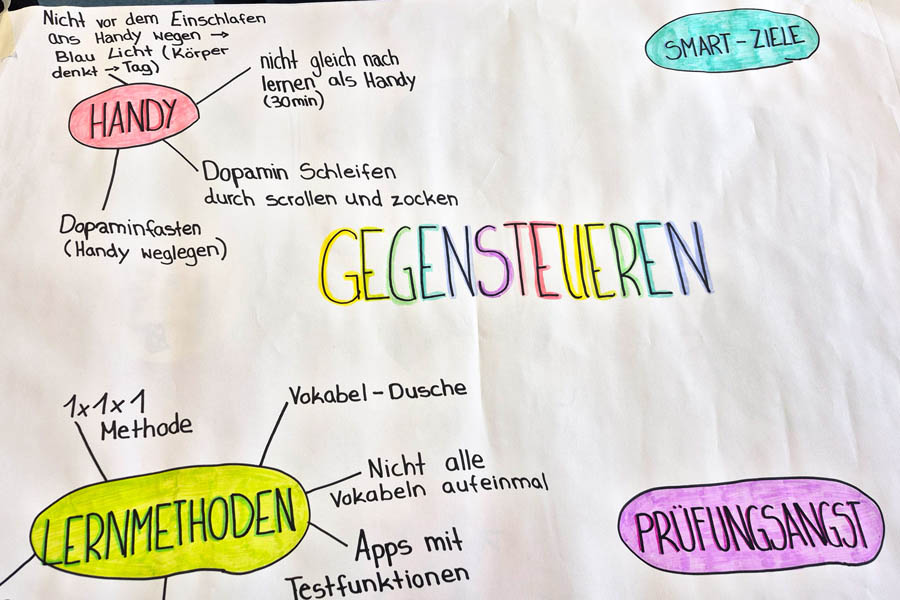 Nicht vor dem Einschlafen
ans Handy wegen →
Blau Licht (Körper
denkt → Tag)
nicht gleich nach
lernen als Handy
(30min)
HANDY
Dopamin Schleifen
durch scrollen und zocken
Dopaminfasten
(Handy weglegen)
SMART-ZIELE
GEGENSTEUEREN
1x1x1
Methode
Vokabel-Dusche
Nicht alle
Vokabeln aufeinmal
LERNMETHODEN
Apps mit
Testfunktionen
PRÜFUNGSANGST